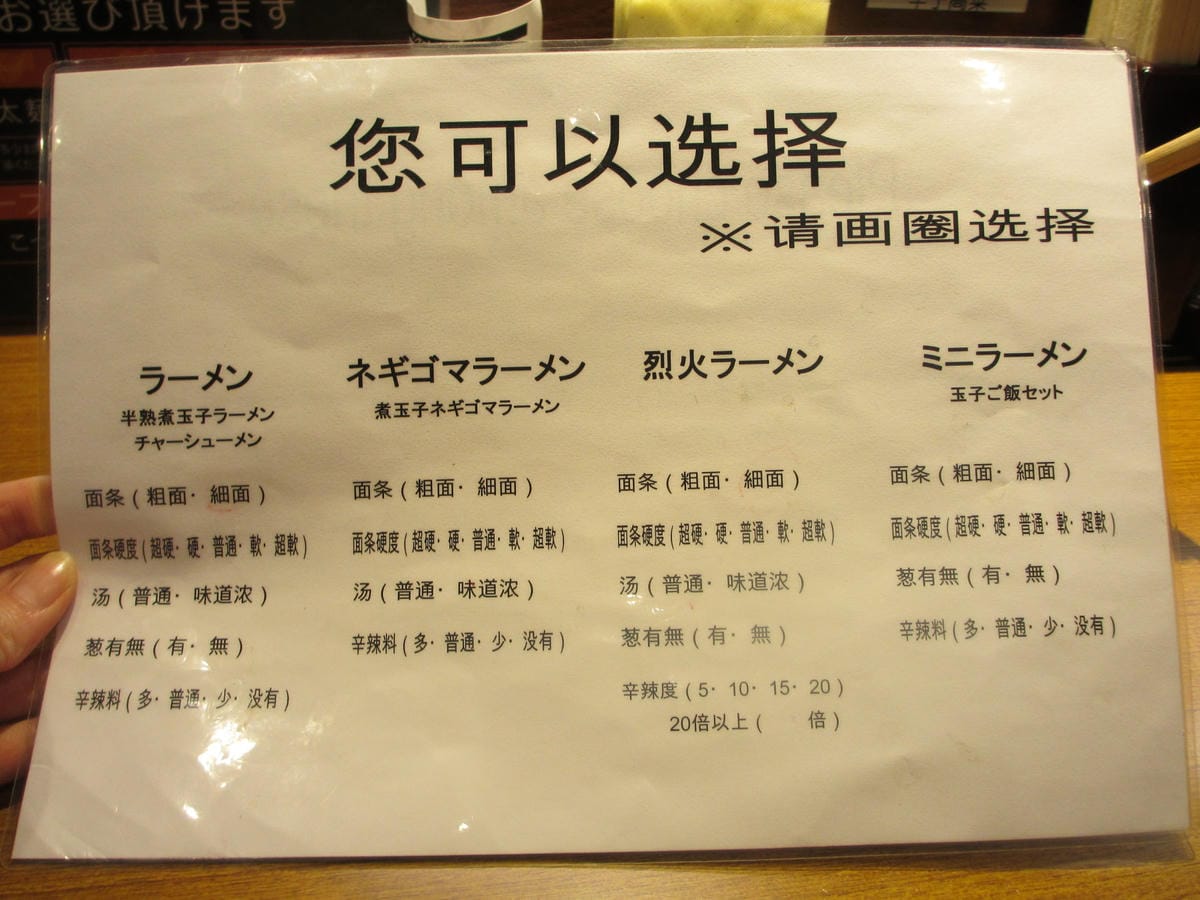 お選び頂けます
太麺
您可以选择
※请画圈选择
ラーメン
半熟煮玉子ラーメン
チャーシューメン
面条（粗面・細面）
面条硬度（超硬・硬・普通・軟・超軟）
汤（普通・味道浓）
葱有無（有・無）
辛辣料（多・普通・少・没有）
ネギゴマラーメン
煮玉子ネギゴマラーメン
面条（粗面・細面）
面条硬度（超硬・硬・普通・軟・超軟）
汤（普通・味道浓）
辛辣料（多・普通・少・没有）
烈火ラーメン
面条（粗面・細面）
面条硬度（超硬・硬・普通・軟・超軟）
汤（普通・味道浓）
葱有無（有・無）
辛辣度（5・10・15・20）
20倍以上（　　倍）
ミニラーメン
玉子ご飯セット
面条（粗面・細面）
面条硬度（超硬・硬・普通・軟・超軟）
葱有無（有・無）
辛辣料（多・普通・少・没有）